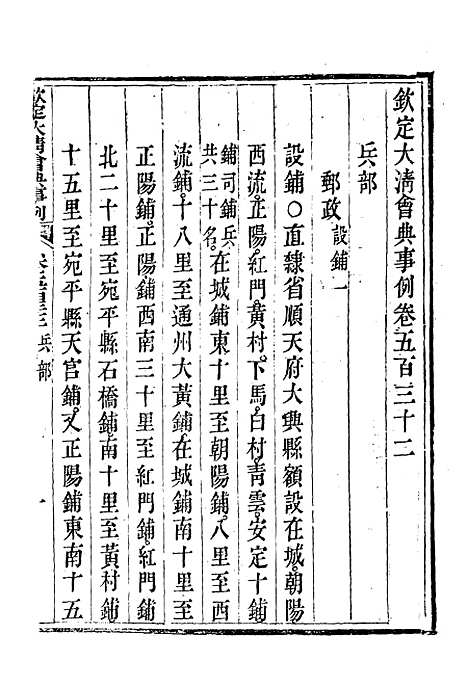 欽定大淸會典事例卷五百三十二
兵部
郵政設鋪一
設鋪〇直隸省順天府大興縣額設在城朝陽
西流正陽紅門黃村下馬白村靑雲安定十鋪
鋪司鋪兵共三十名在城鋪東十里至朝陽鋪八里至西
流鋪十八里至通州大黃鋪在城鋪南十里至
正陽鋪正陽鋪西南三十里至紅門鋪紅門鋪
北二十里至宛平縣石橋鋪南十里至黃村鋪
十五里至宛平縣天宮鋪又正陽鋪東南十五
欽定大淸會典事例 兵部 一